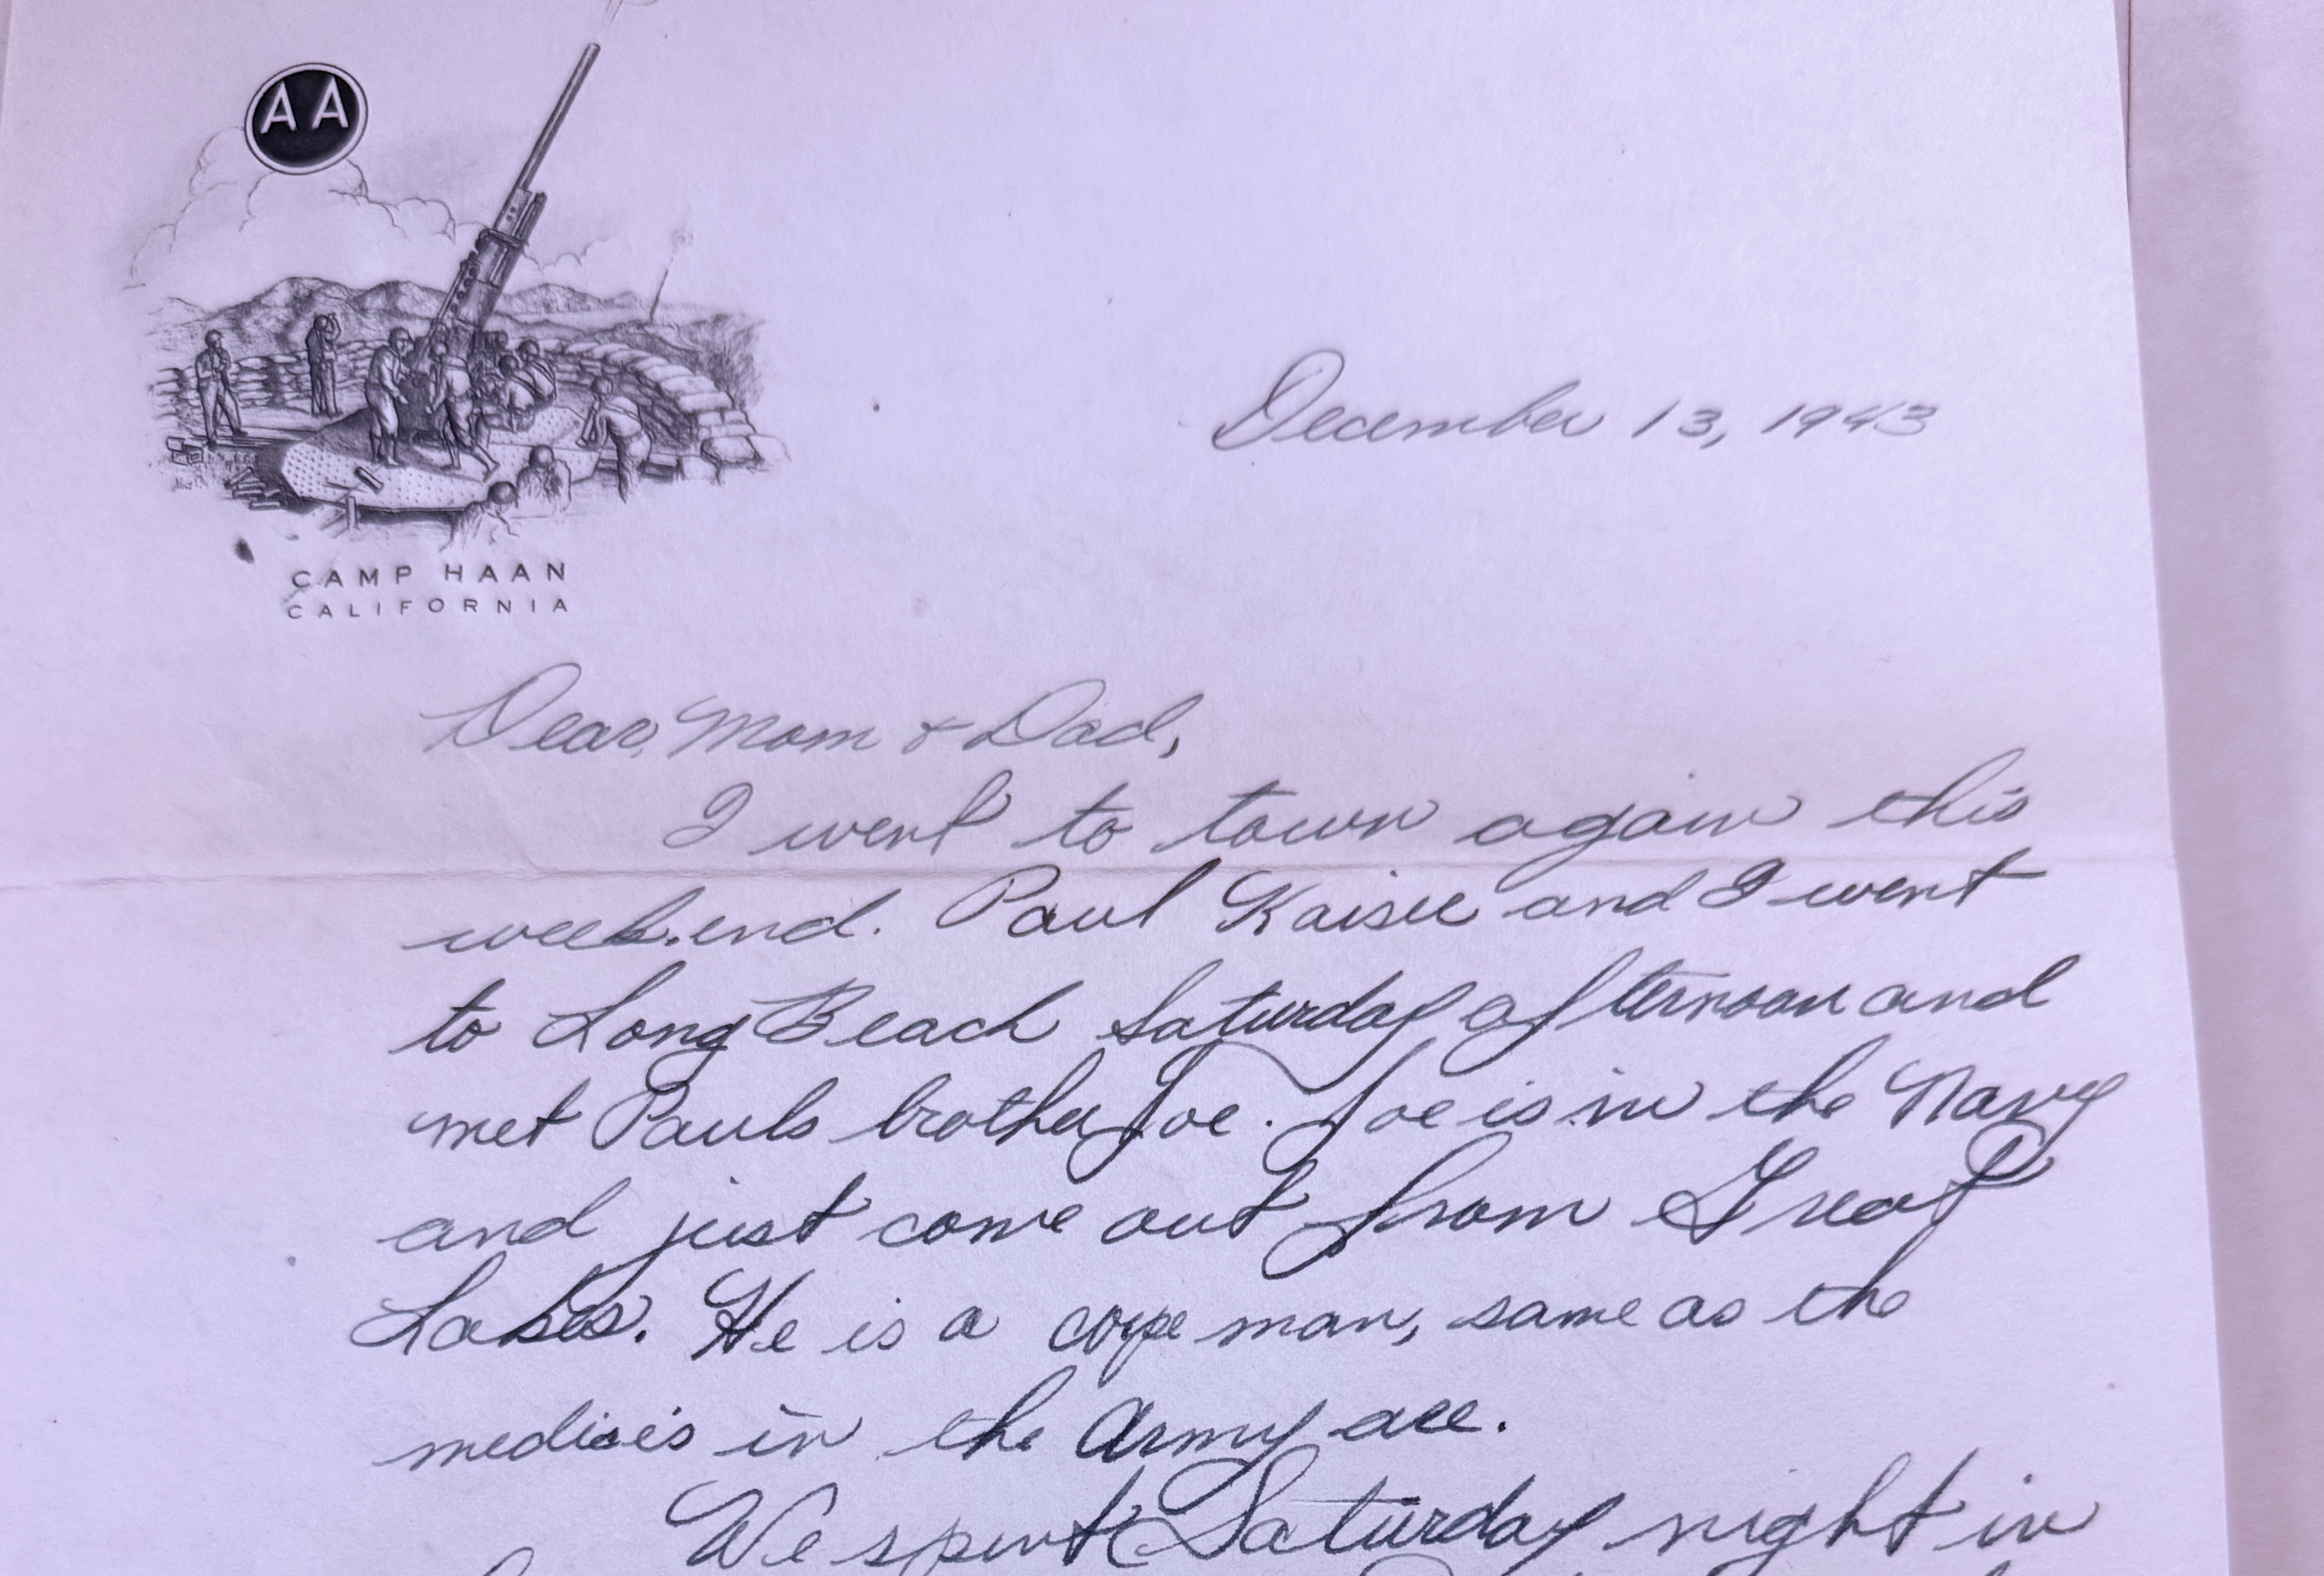 AA
CAMP HAAN
CALIFORNIA
December 13, 1943
Dear, Mom & Dad,
I went to town again this
week.end. Paul Kaiser and I went
to Long Beach Saturday afternoon and
met Pauls brother Joe. Joe is in the Navy
and just come out from Great
Lakes. He is a corpe man, same as the
medics in the Army are.
We spent Saturday night in